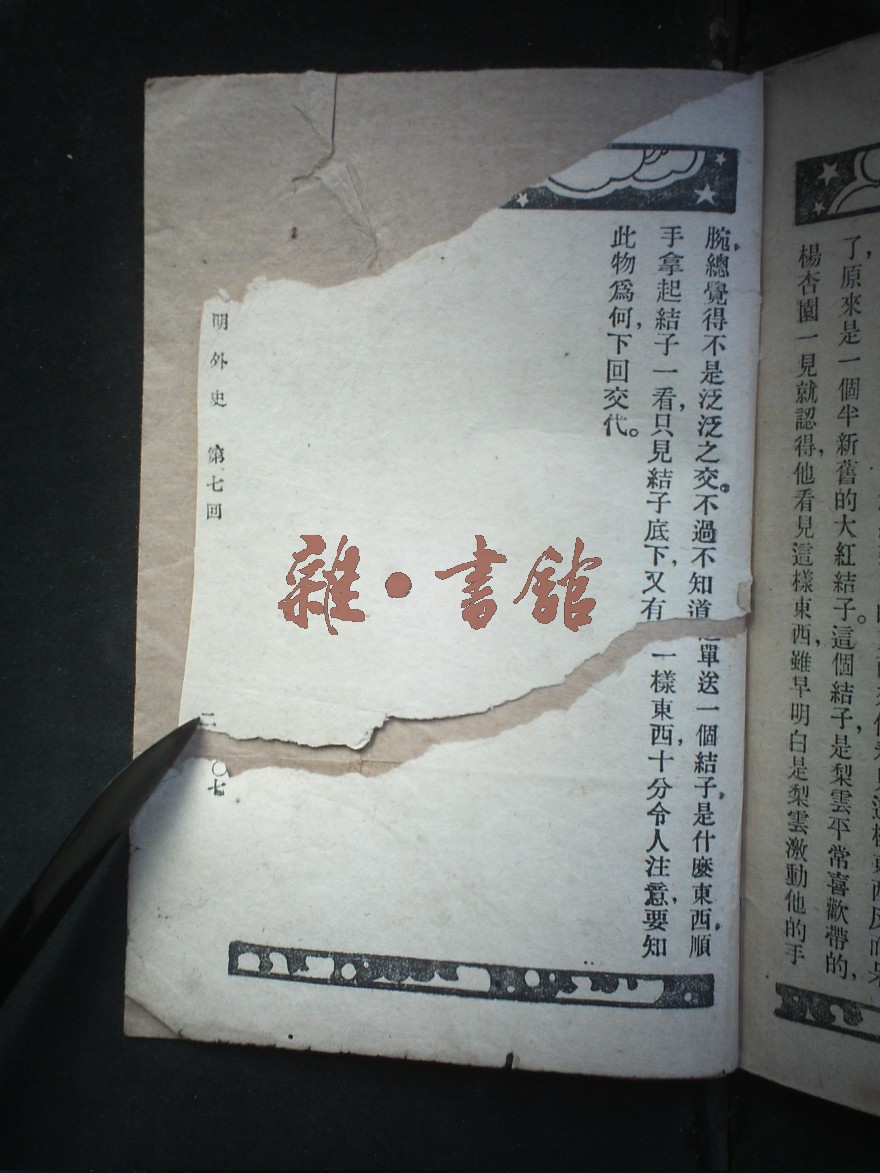 了，原來是一個半新舊的大紅結子。這個結子，是梨雲平常喜歡帶的，
楊杏園一見就認得，他看見這樣東西，雖早明白是梨雲激動他的手
腕，總覺得不是泛泛之交。不過不知道單送一個結子，是什麼東西，順
手拿起結子一看，只見結子底下，又有一樣東西，十分令人注意，要知
此物爲何，下回交代。
明外史 第七回
二〇七
雜·書館